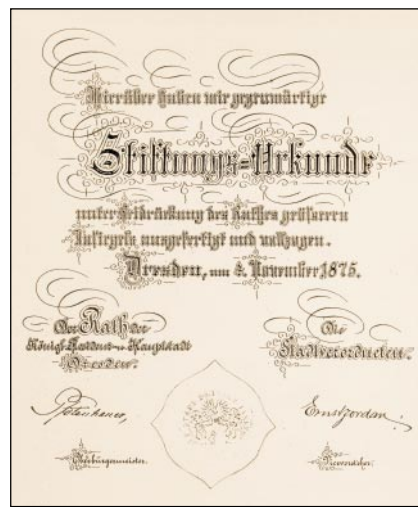 Hierüber haben wir gegenwärtige
Stiftungs=Urkunde
unter Beidrückung des Rathes größeren
Insiegels ausgefertigt und vollzogen.
Dresden, am 4. November 1875.
Der Rath der
Königl. Residenz- u. Hauptstadt
Dresden.
Die
Stadtverordneten.
Ernst Jordan.
Oberbürgermeister.